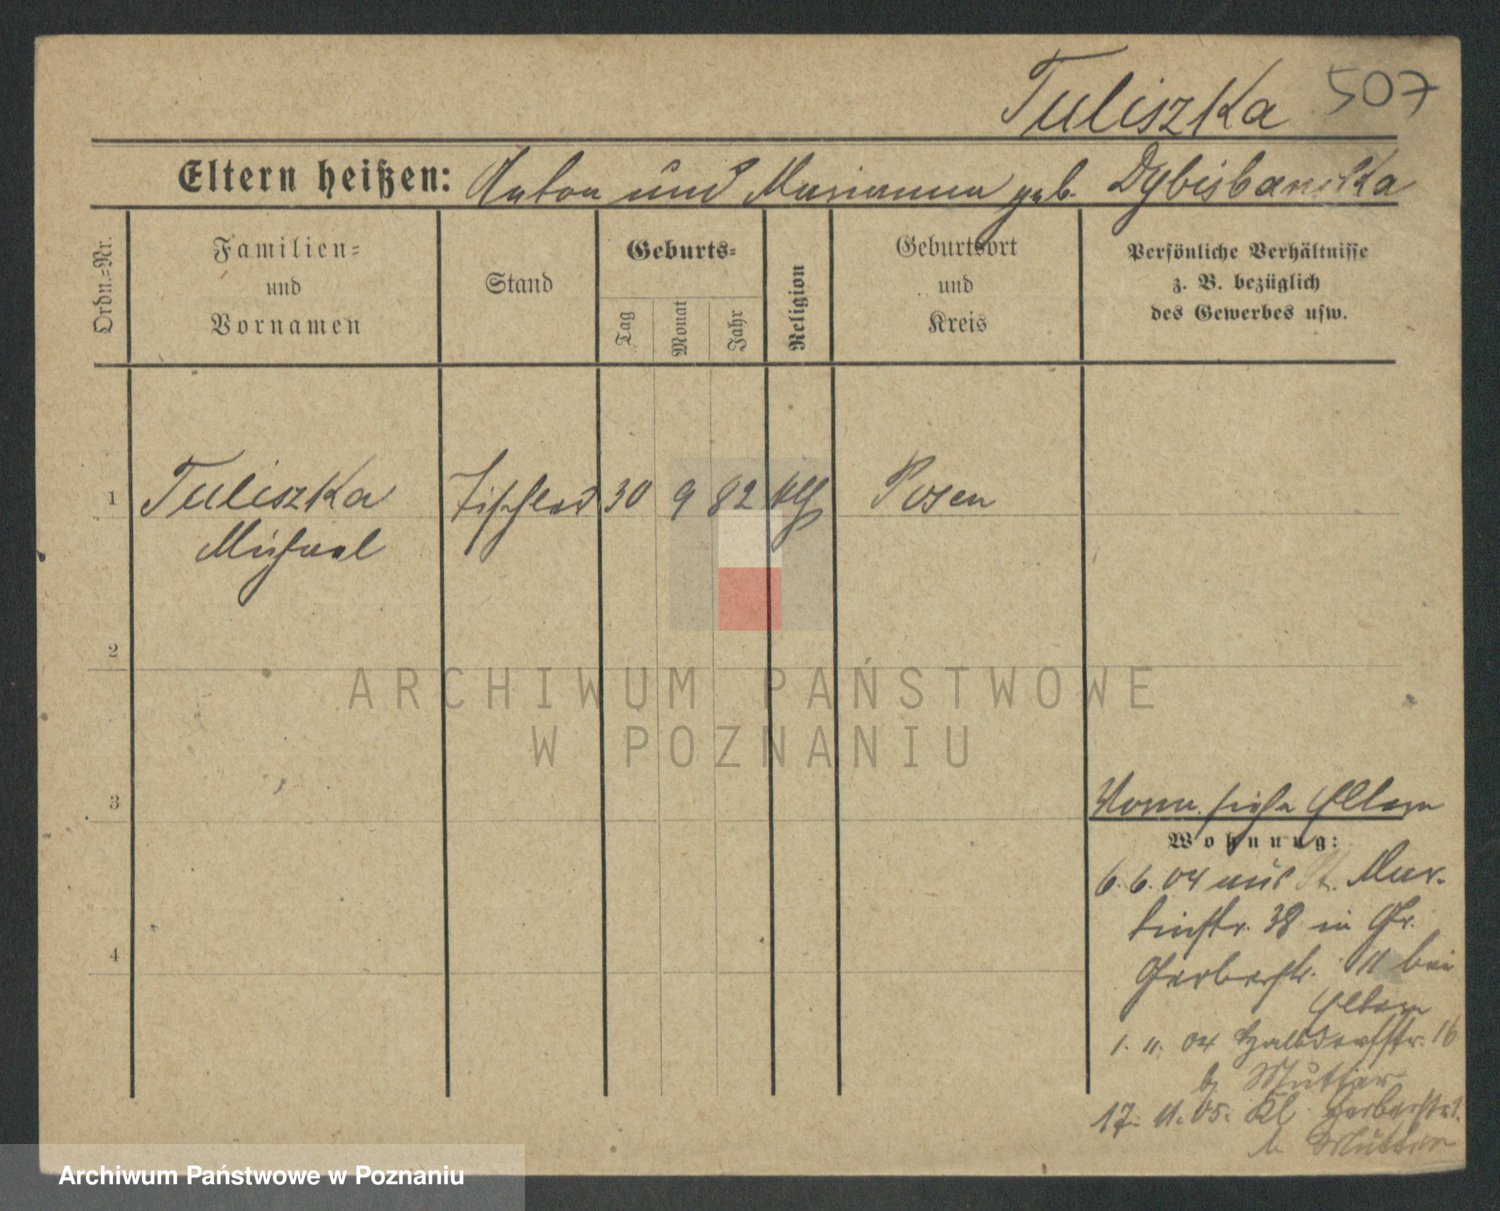 Tuliszka 507
Eltern heißen: Anton und Marianna geb. Dybisbanska
Ordn.-Nr.
Familien-
und
Vornamen
Stand
Geburts-
Tag
Monat
Jahr
Religion
Geburtsort
und
Kreis
Persönliche Verhältnisse
z. B. bezüglich
des Gewerbes usw.
1 Tuliszka Tischler 30 9 82 kth Posen
Michael
2
ARCHIWUM PAŃSTWOWE
W POZNANIU
3
Vorm. siehe Eltern
Wohnung:
6. 6. 04 aus St. Mar-
tinstr. 38 in Gr.
4
Gerberstr. 11 bei
Eltern
1. 11. 04 Halbdorfstr. 16
b Mutter
17. 11. 05. Kl. Gerberstr.
b Mutter
Archiwum Państwowe w Poznaniu